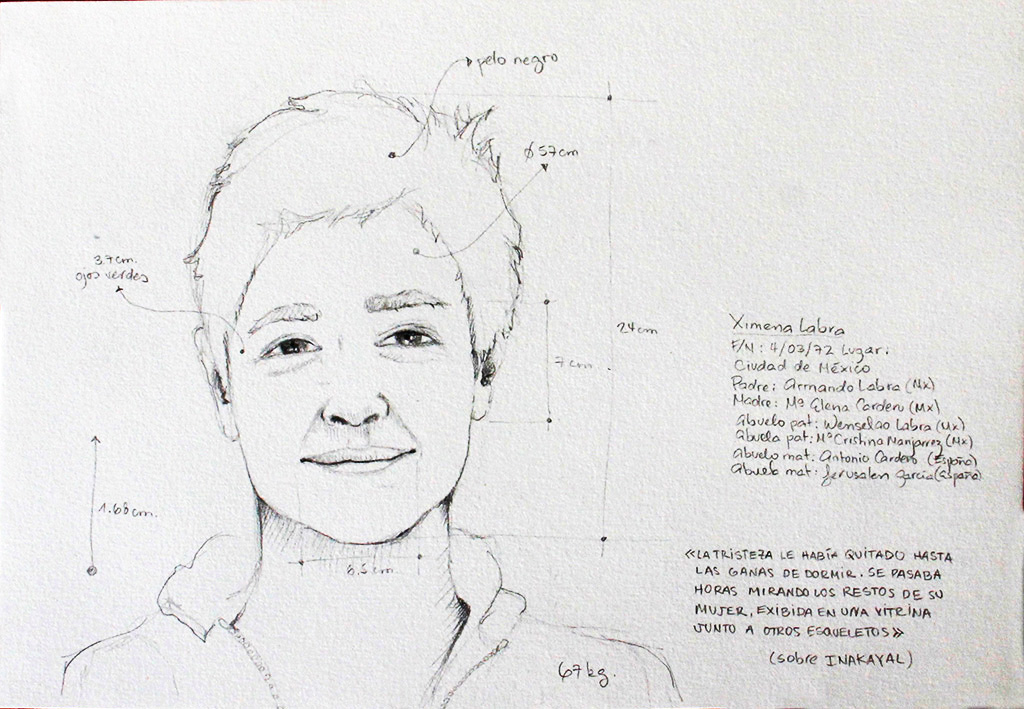 pelo negro
ø 57cm
3.7cm.
ojos verdes
24cm
7cm
1.68cm.
8.5cm.
67kg.
Ximena Labra
F/N: 4/03/72 Lugar:
Ciudad de México
Padre: Armando Labra (Mx)
Madre: Mª Elena Cardero (Mx)
Abuelo pat: Wenselao Labra (Mx)
Abuela pat: Mª Cristina Manjarrez (Mx)
Abuelo mat: Antonio Cardero (España)
Abuela mat: Jerusalen García (España)
«LA TRISTEZA LE HABÍA QUITADO HASTA
LAS GANAS DE DORMIR. SE PASABA
HORAS MIRANDO LOS RESTOS DE SU
MUJER, EXIBIDA EN UNA VITRINA
JUNTO A OTROS ESQUELETOS»
(sobre INAKAYAL)